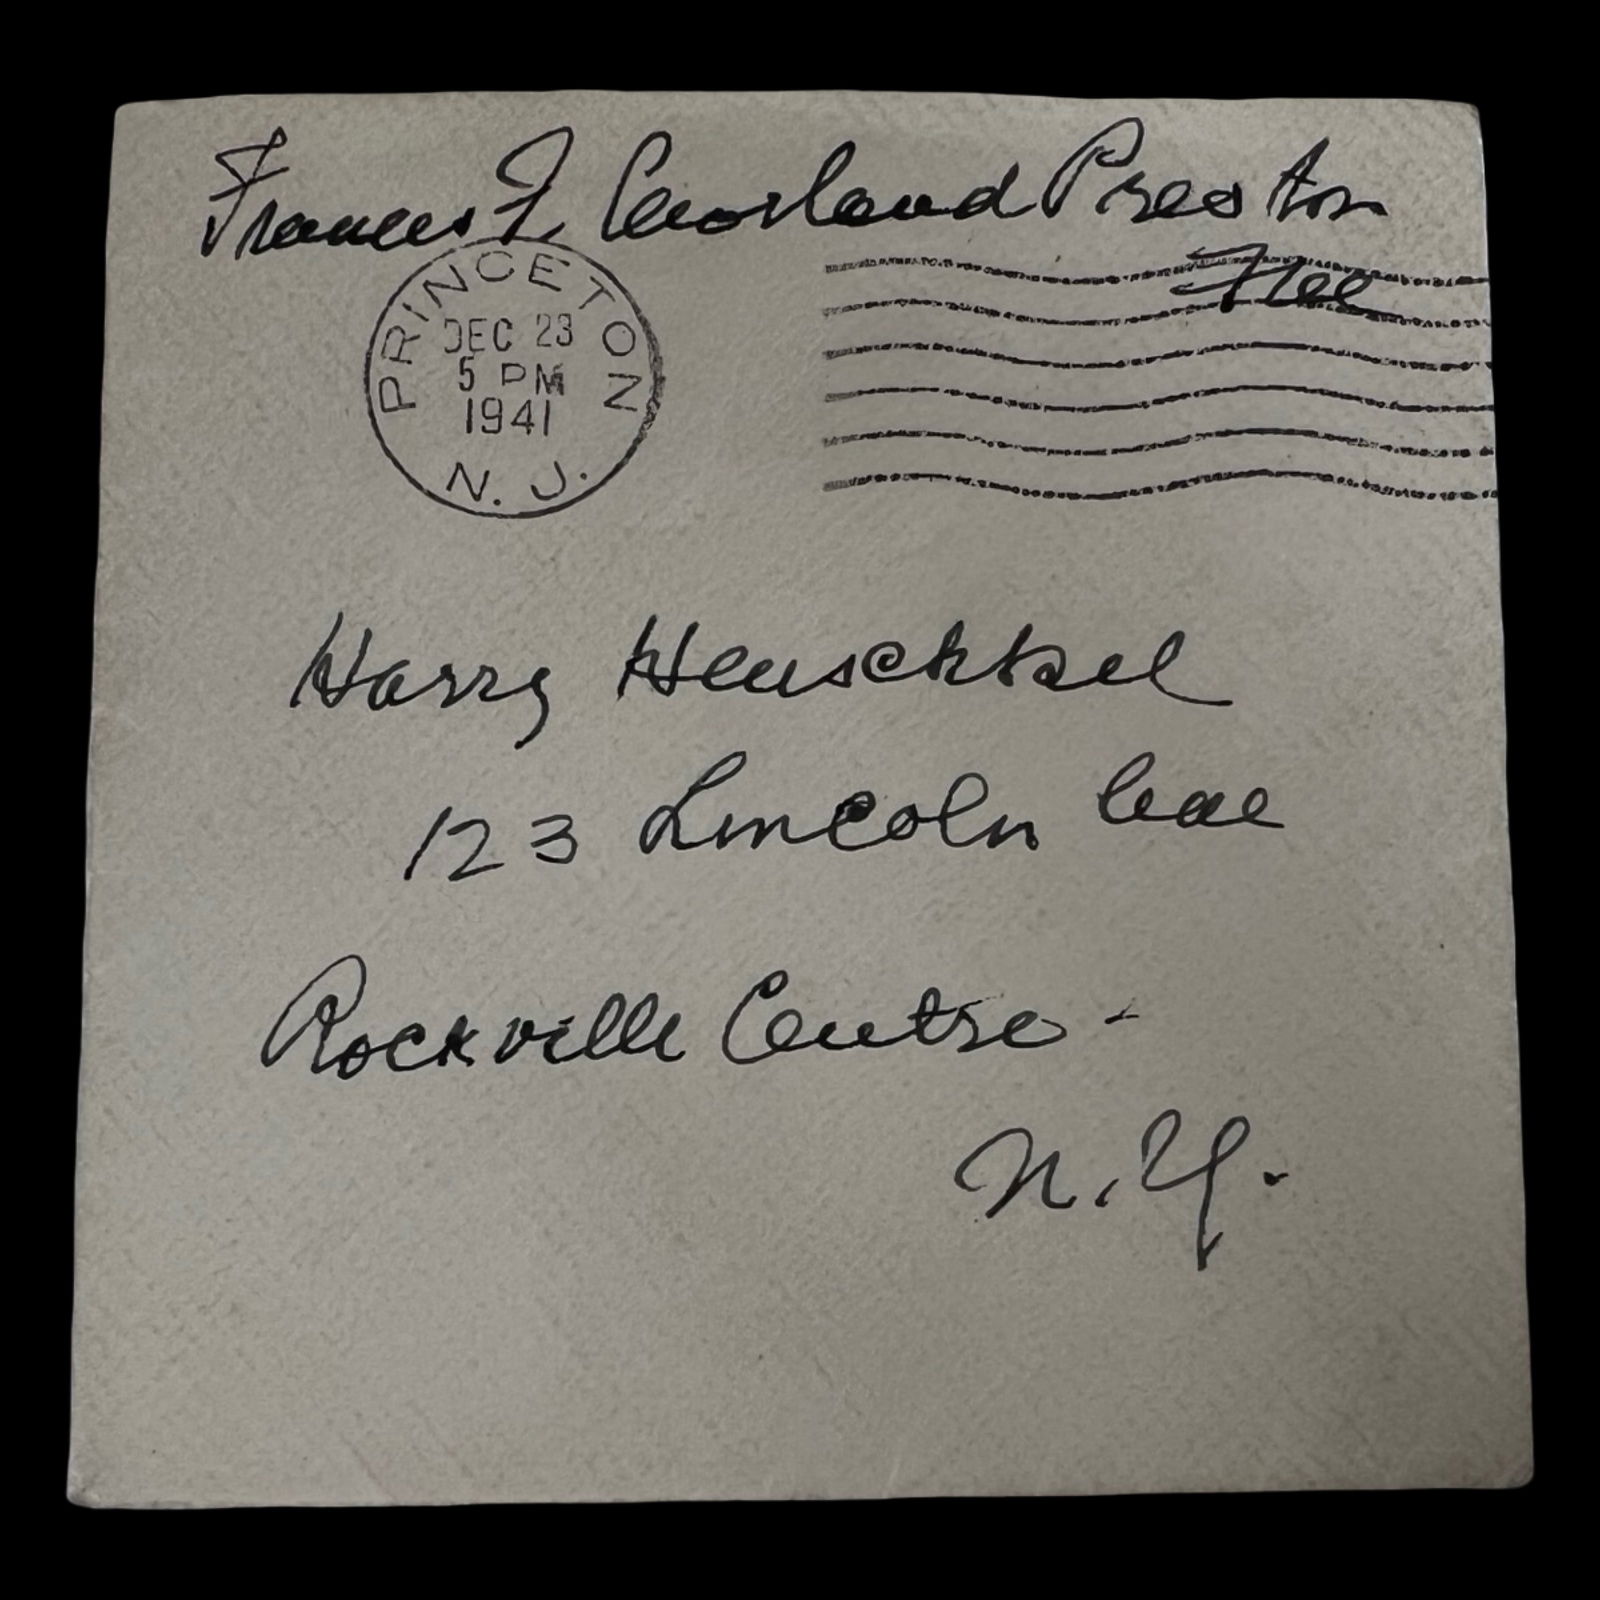 Frances F Cleveland Preston
Free
PRINCETON
DEC 23
5 PM
1941
N. J.
Harry
123 Lincoln Ave
Rockville Centre -
N. Y.